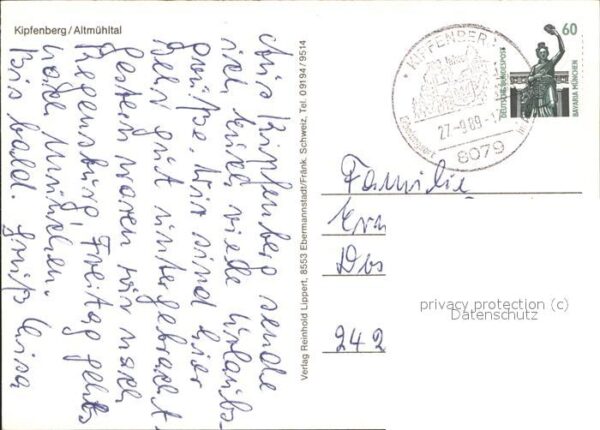 Kipfenberg/Altmühltal
Aus Kipfenberg sende
ich Euch viele Urlaubs-
grüße. Wir sind hier
sehr gut untergebracht.
Gestern waren wir nach
Regensburg, Freitag gehts
nach München.
Bis bald. Gruß Luisa
Verlag Reinhold Lippert, 8553 Ebermannstadt/Fränk. Schweiz, Tel. 09194/9514
KIPFENBERG
27.-9.89.-
8079
60
DEUTSCHE BUNDESPOST
BAVARIA MÜNCHEN
Familie
242
privacy protection (c)
Datenschutz